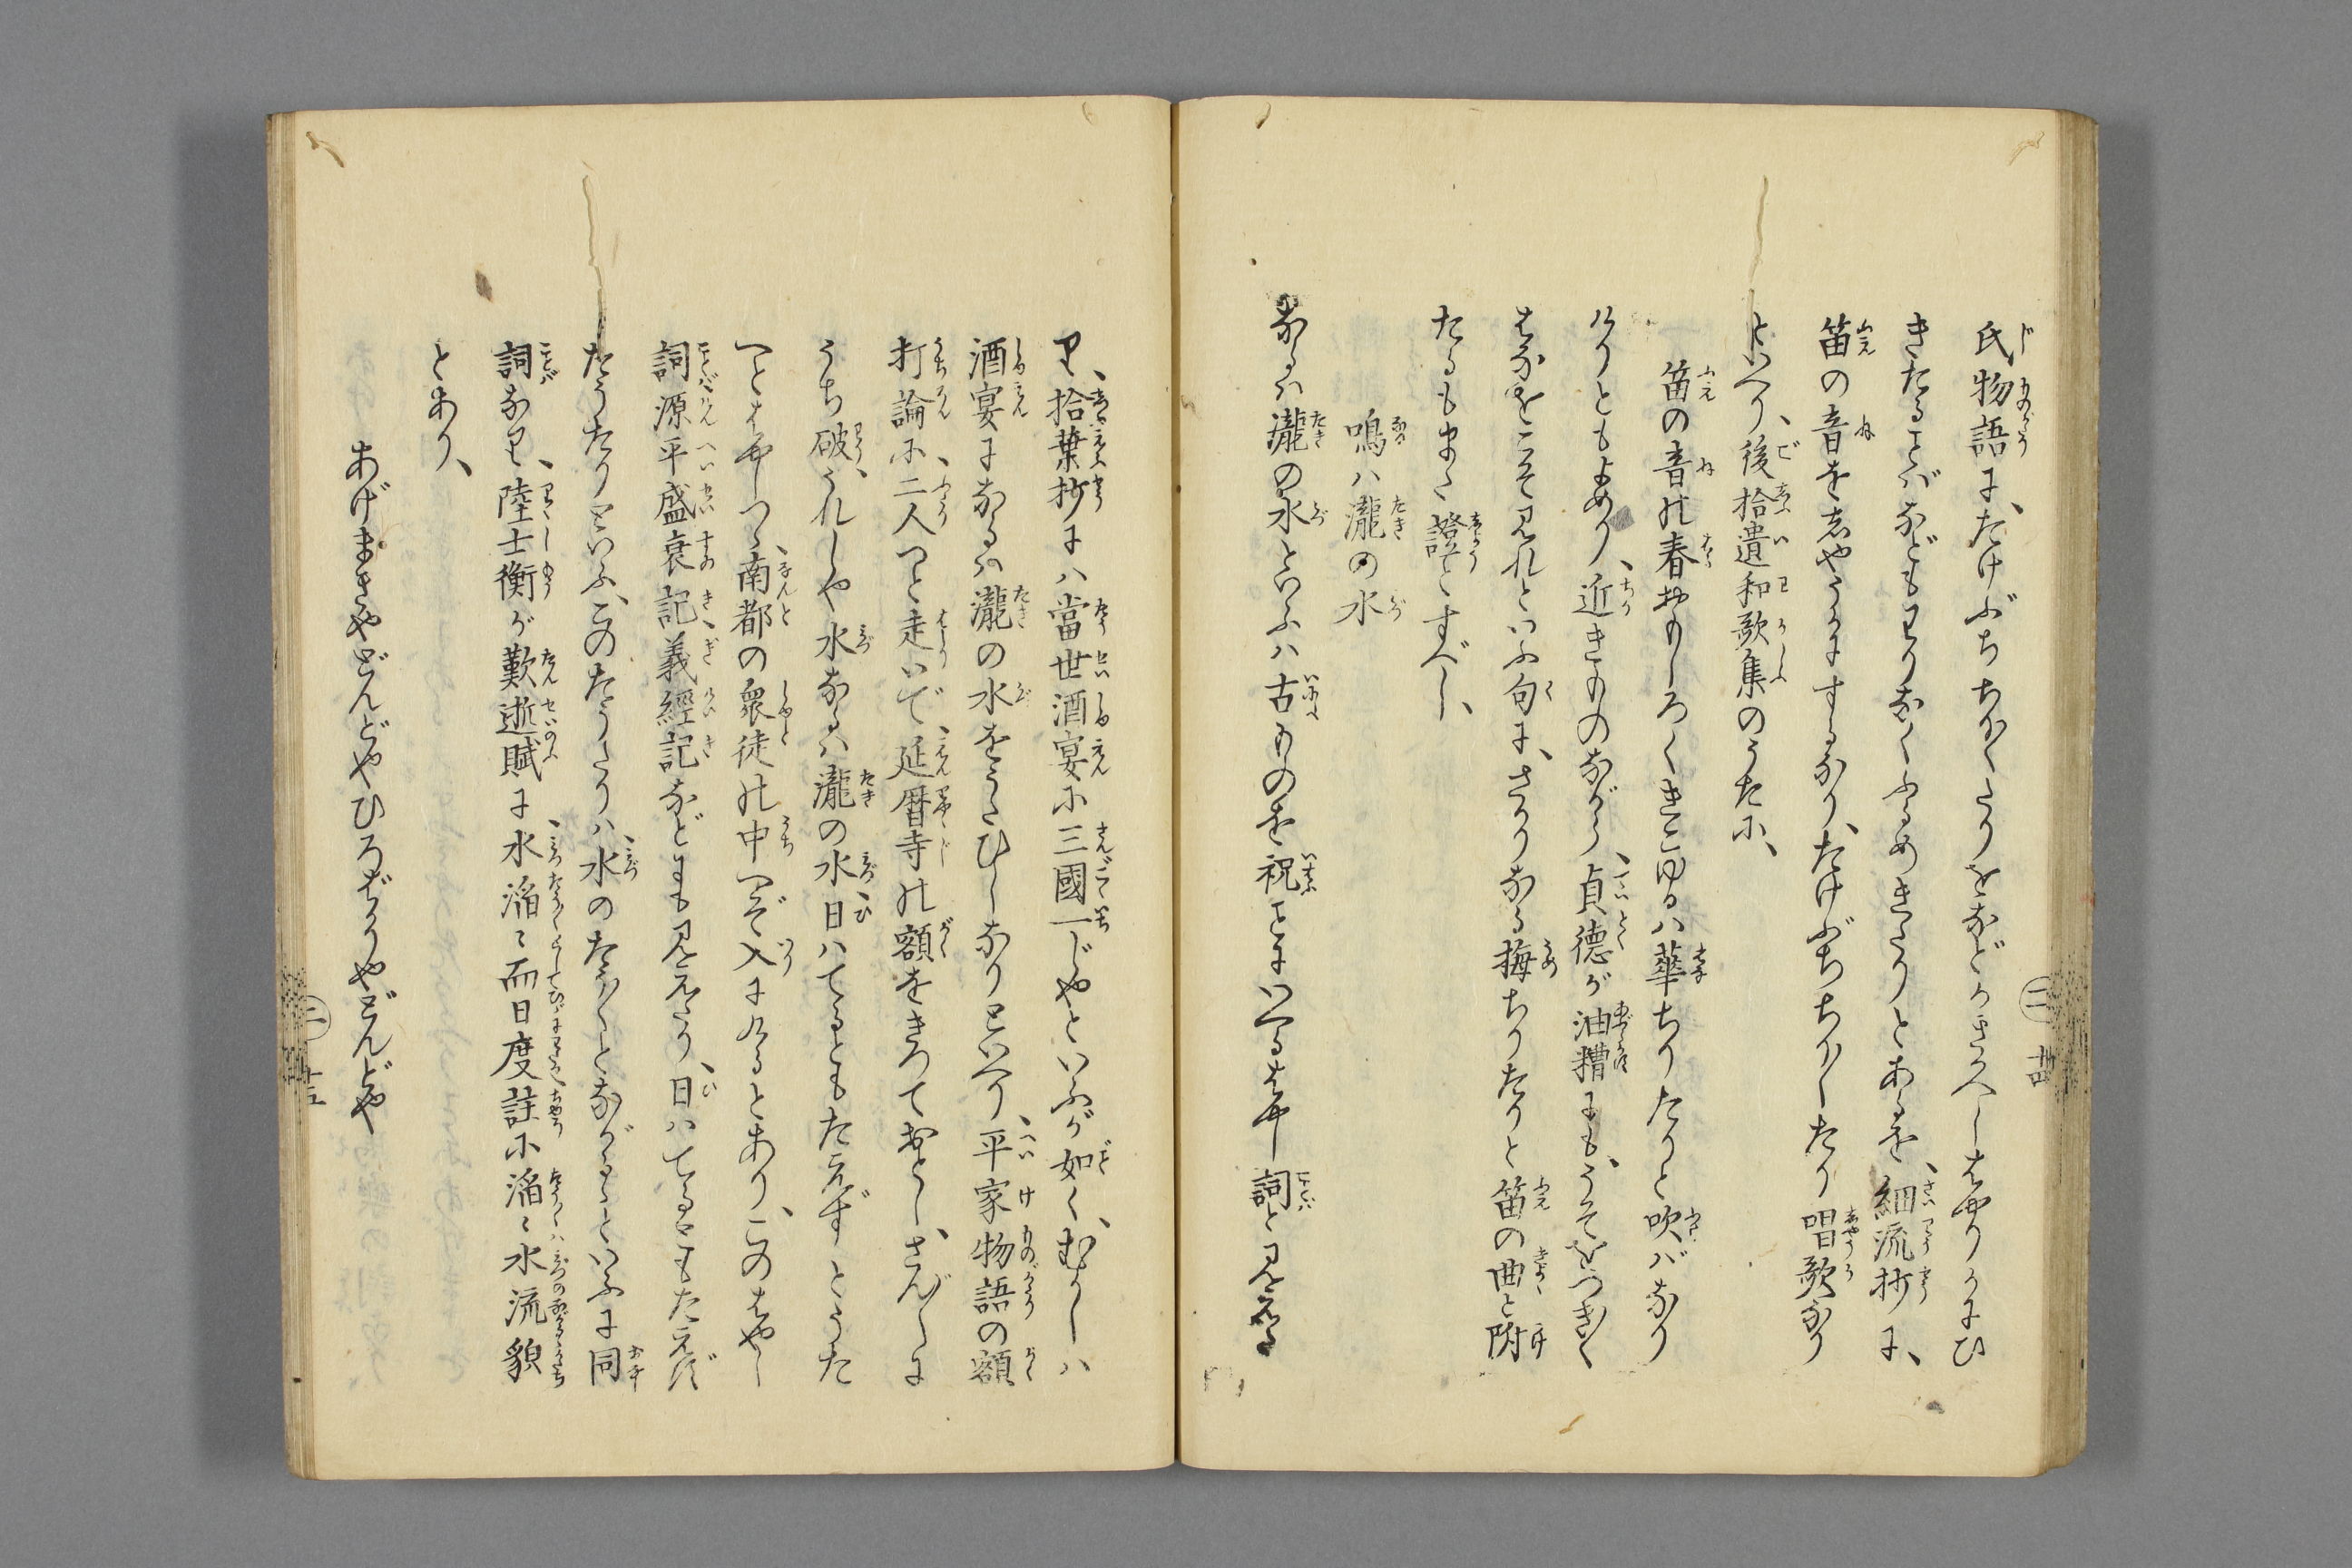 氏物語に、たけぶちちかくたりをなどかきかへしはやりかにひ
きたることばなどもわりなくふるめきたりとあるを、細流抄に、
笛の音をしやうかにするなり、たけぶちちかくたり唱歌なり
といへり、後拾遺和歌集のうたに、
笛の音の春おもしろくきこゆるは華ちりたりと吹バなり
けりともよめり、近きものながら、貞徳が油糟にも、うそをつきぬく
はなをこそ見れといふ句に、さかりなる梅ちりたりと笛の曲と附
たるもまた證とすべし、
鳴ハ瀧の水
なるハ瀧の水といふハ古ものを祝ことにいへるはやし詞と見えた
り、拾葉抄にハ當世酒宴に三國一じやといふが如く、むかしハ
酒宴になるハ瀧の水をうたひしなりといへり、平家物語の額
打論に、二人つと走いで、延暦寺の額をきつておとし、さん〴〵に
うち破、うれしや水なるハ瀧の水、日ハてるともたえずとうた
へとはやしつゝ、南都の衆徒の中へぞ入にけるとあり、このはやし
詞源平盛衰記、義經記などにも見えたり、日ハてるともたえず
たうたりといふ、このたうたりハ、水のたう〳〵とながるゝといふに同
詞なり、陸士衡が歎逝賦に、水滔〻而日度註に滔〻水流貌
とあり、
あげまきやどんどやひろばかりやどんどや
二 廿四
二 廿五